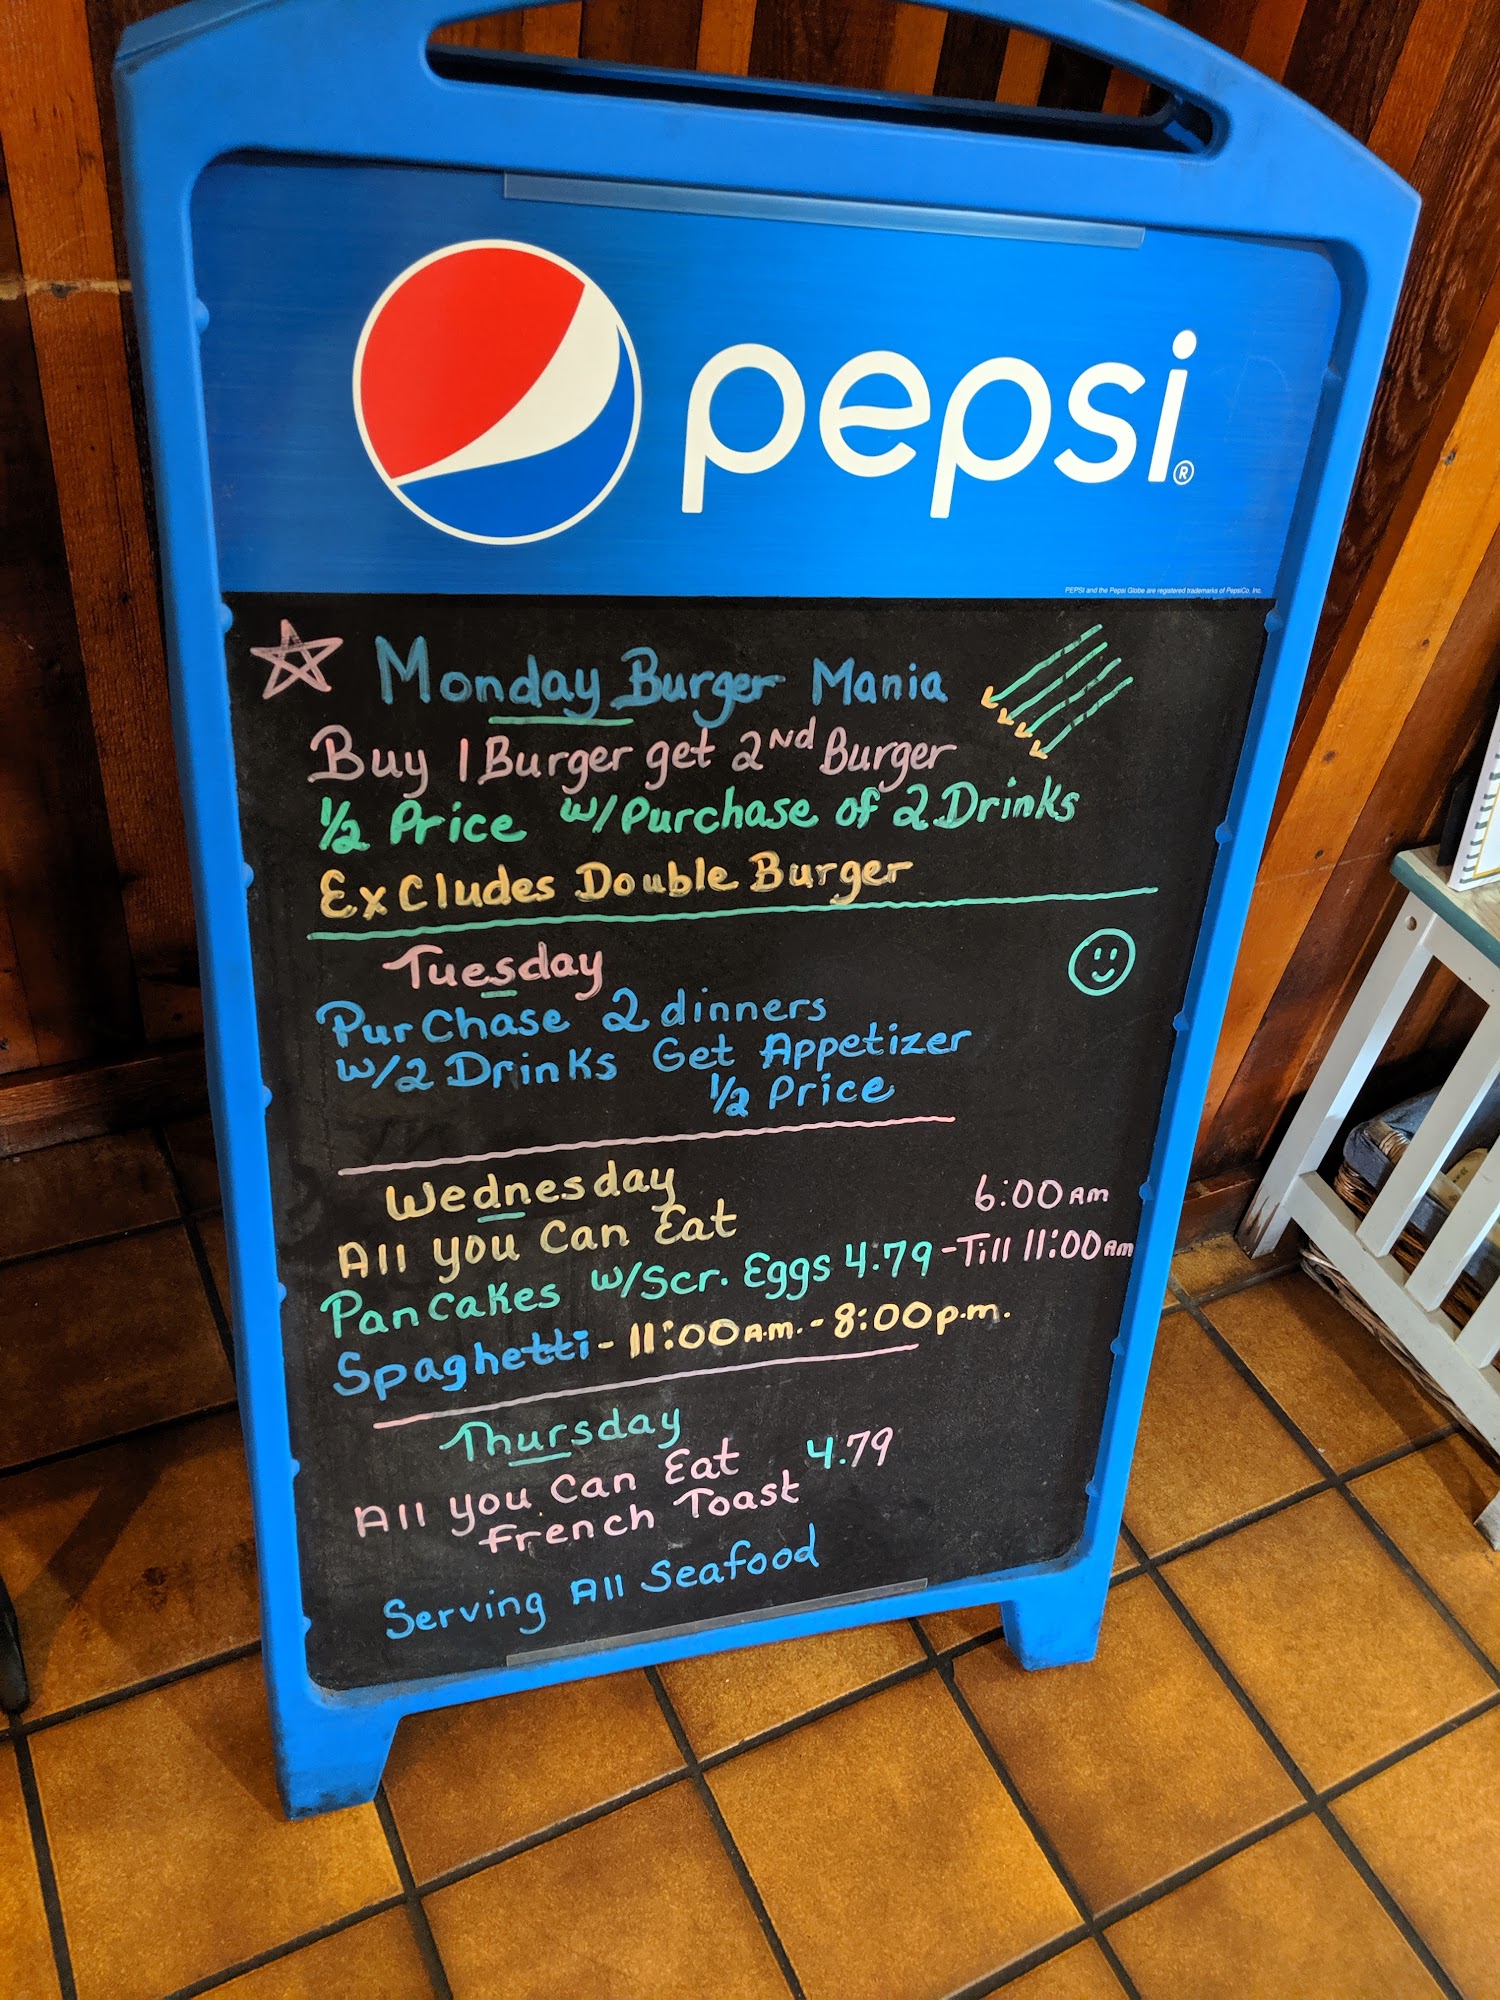 pepsi®
PEPSI and the Pepsi Globe are registered trademarks of PepsiCo, Inc.
Monday Burger Mania
Buy 1 Burger get 2Nd Burger
1/2 Price w/Purchase of 2 Drinks
Excludes Double Burger
Tuesday
Purchase 2 dinners
w/2 Drinks Get Appetizer
1/2 Price
Wednesday
All you Can Eat 6:00 AM
Pancakes w/Scr. Eggs 4.79 -Till 11:00 AM
Spaghetti - 11:00 A.M. - 8:00 p.m.
Thursday
All you Can Eat 4.79
French Toast
Serving All Seafood